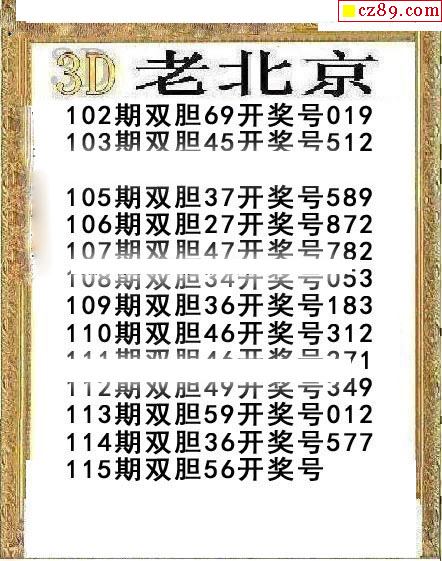 cz89.com
3D 老北京
102期双胆69开奖号019
103期双胆45开奖号512
105期双胆37开奖号589
106期双胆27开奖号872
107期双胆47开奖号782
108期双胆34开奖号053
109期双胆36开奖号183
110期双胆46开奖号312
111期双胆46开奖号371
112期双胆49开奖号349
113期双胆59开奖号012
114期双胆36开奖号577
115期双胆56开奖号